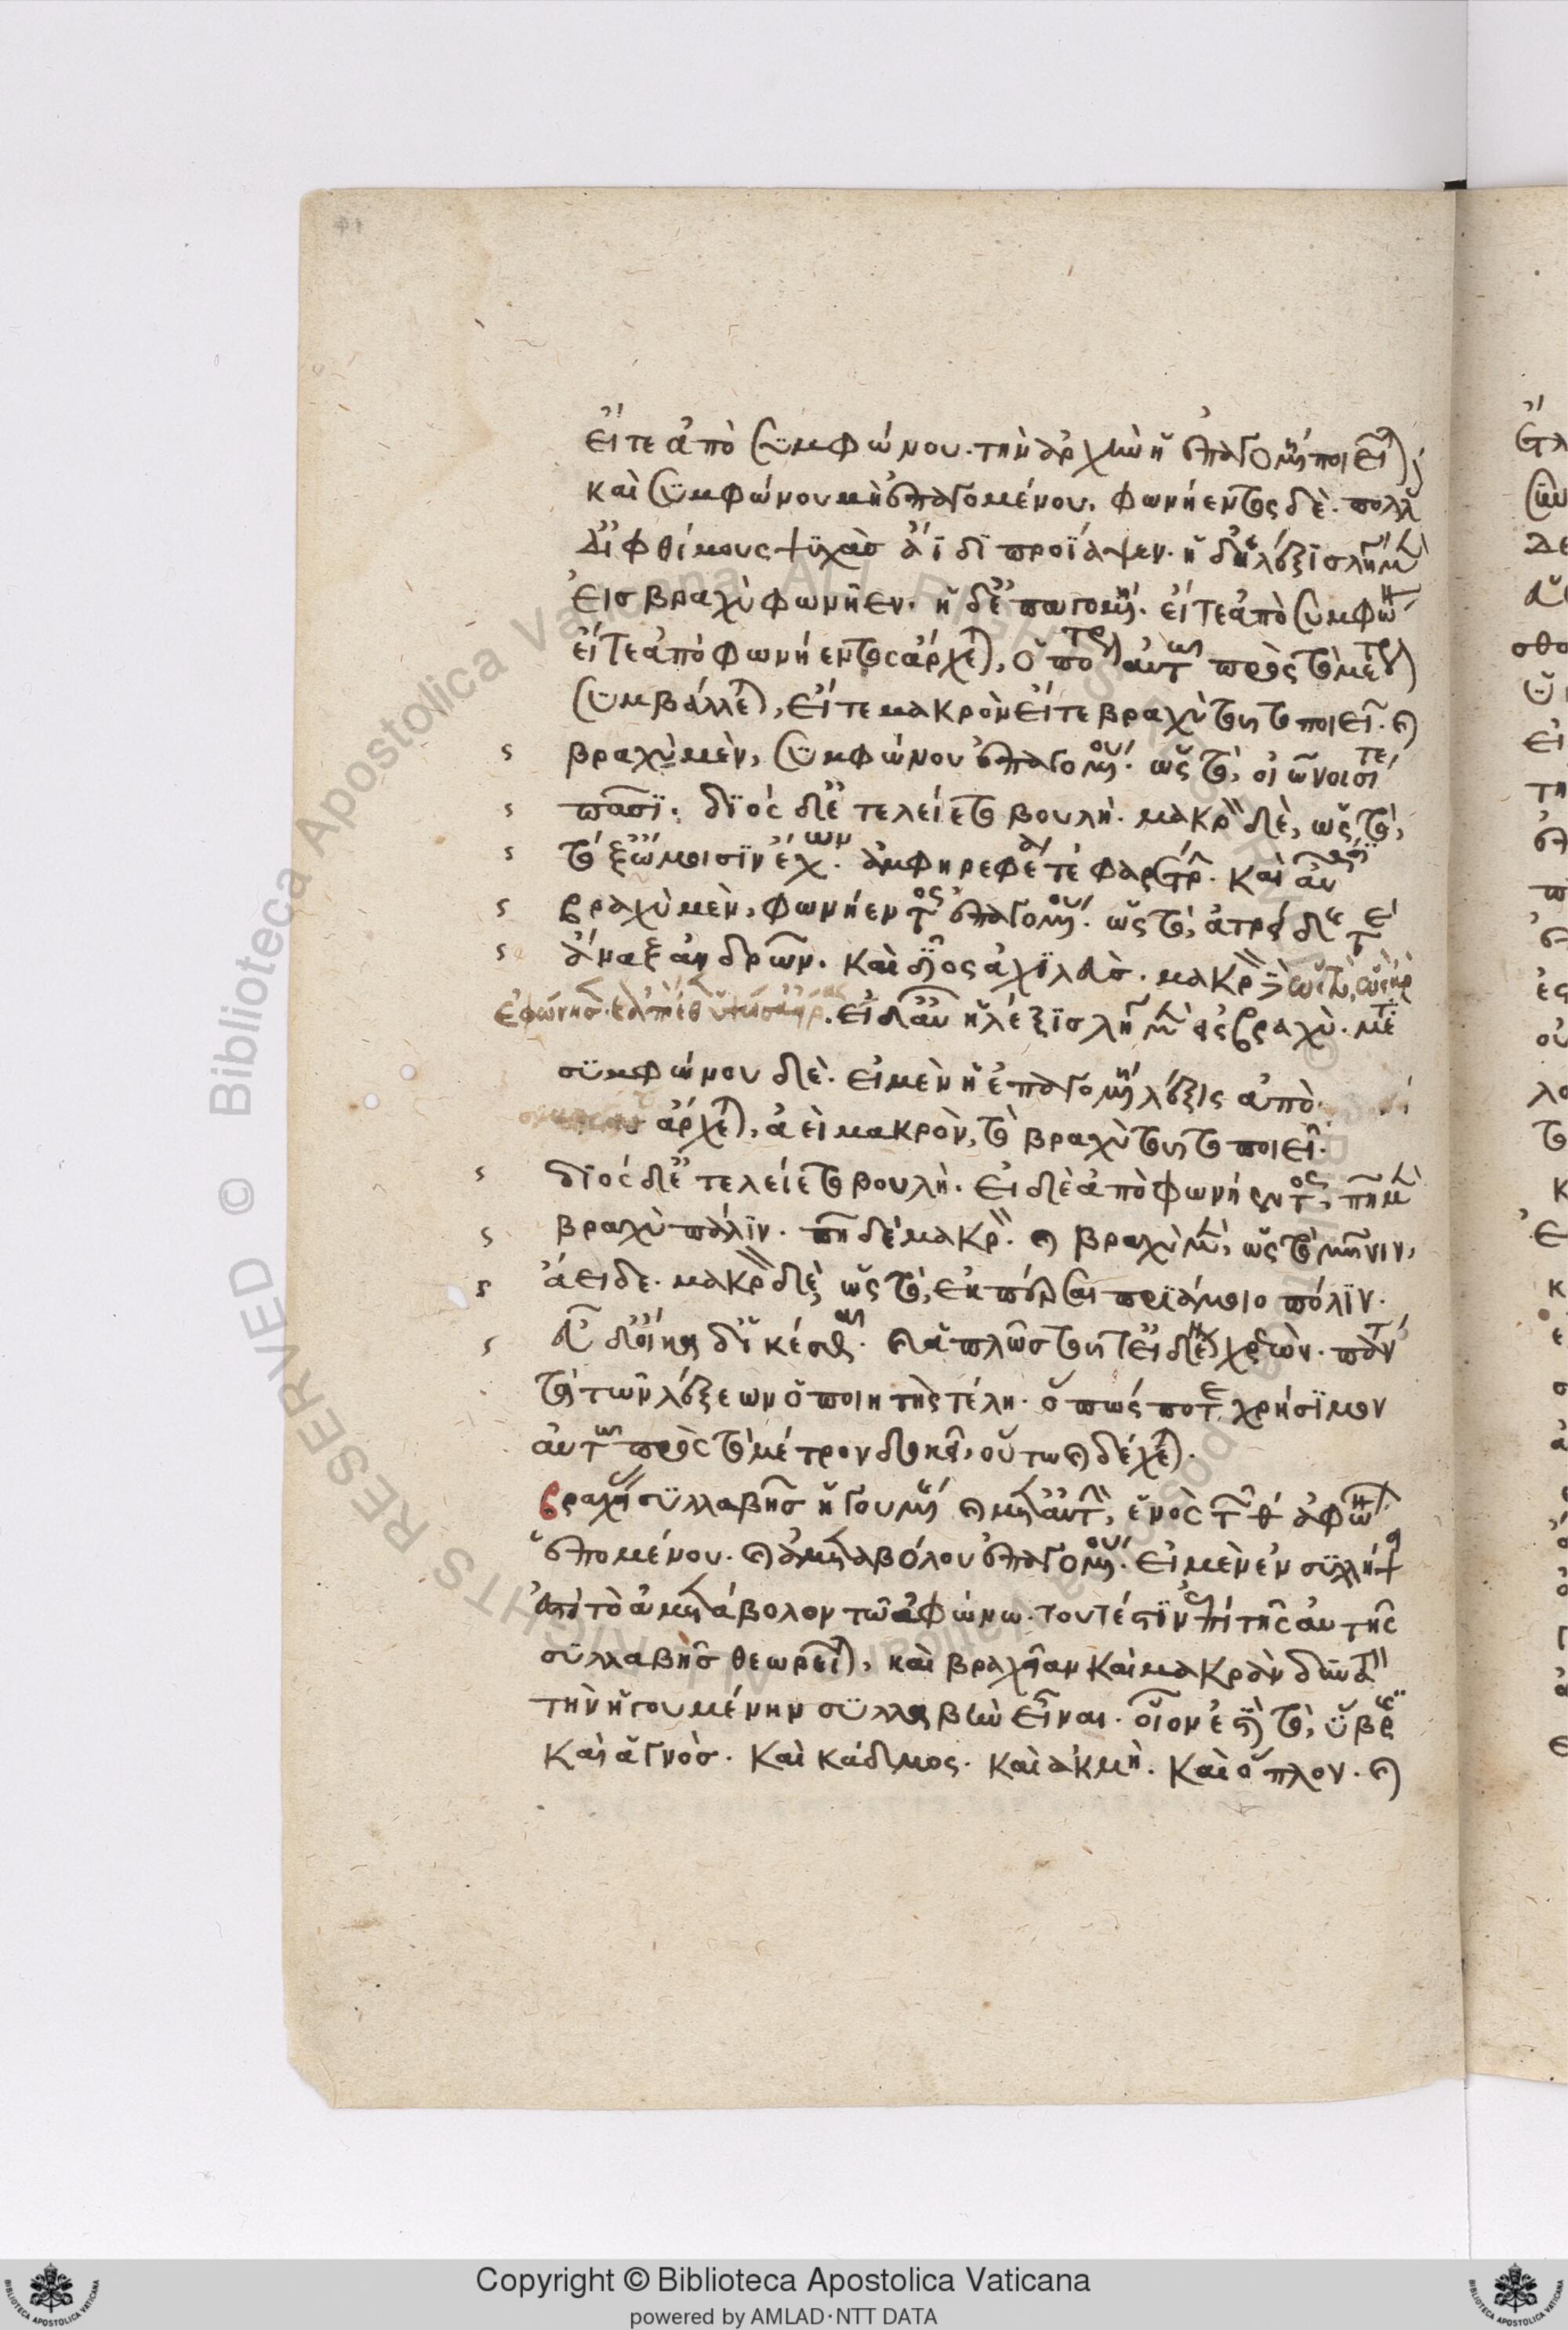 εἴτε ἀπὸ συμφώνου τὴν ἀρχὴν ἡ ἐπαγομένη ποιεῖται,
καὶ συμφώνου μὴ ἐπαγομένου, φωνήεντος δὲ. πολλὰς
δ' ἰφθίμους ψϋχὰσ ἄϊδϊ προΐαψεν. ἢ δὴ λέξϊς λήγει μὲν
εἰσ βραχὺ φωνῆεν. ἡ δ' ἐπαγομένη. εἴτε ἀπὸ συμφώνου
εἴτε ἀπὸ φωνήεντος ἄρχεται, ὁπότερον αὐτῶ πρὸς τὸ μέτρον
συμβάλλεται, εἴτε μακρὸν εἴτε βραχὺ τουτο ποιεῖ. καὶ
βραχὺ μὲν, συμφώνου ἐπαγομένου. ὡς τὸ, οἰωνοισί τε
πᾶσϊ. δϊὸς δ' ἐτελείετο βουλή. μακρὸν δὲ, ὡς τὸ,
τόξ' ὤμοισϊν ἔχων. ἀμφηρεφέα τέ φαρέτρην. καὶ αὖ
βραχὺ μὲν, φωνήεντος ἐπαγομένου. ὡς τὸ, ἀτρείδης τε
ἄναξ ἀνδρῶν. καὶ δῖος ἀχϊλλεύσ. μακρὸν δὲ ὡς τὸ,
εἰ δ' αὖ ἡ λέξϊσ λήγει μὲν εἰς βραχὺ. μετὰ
σϋμφώνου δὲ. εἰ μὲν ἡ ἐπαγομένη λέξις ἀπὸ
ἄρχεται, ἀεὶ μακρὸν, τὸ βραχὺ τουτο ποιεῖ.
δϊὸς δ' ἐτελείετο βουλή. εἰ δὲ ἀπὸ φωνήεντος, πῆ μὲν
βραχὺ πάλϊν. πῆ δὲ μακρὸν. καὶ βραχὺ μὲν, ὡς τὸ μῆνιν,
ἄειδε. μακρὸν δὲ, ὡς τὸ, ἐκπέρσαι πρϊάμοιο πόλϊν.
εὖ δ' οἴκαδ' ἱκέσθαι. καὶ ἁπλῶσ τουτί εἰδέναι χρεών. πάντα
τὰ τῶν λέξεων ὁ ποιητὴς τέλη. ὅπως ποτὲ χρήσϊμον
αὐτῶ πρὸς τὸ μέτρον δοκεῖ, οὕτω καὶ δέχεται.
βραχείασ σϋλλαβῆσ ἡγουμένης καὶ μετ' αὐτὴν, ἑνὸς τῶν θ ἀφώνων
ἑπομένου. καὶ ἀμεταβόλου ἐπαγομένου. εἰ μὲν ἐν συλλήψει
εἴη τὸ ἀμετάβολον τῶ ἀφώνω. τουτέστϊν ἐπὶ τῆς αὐτῆς
σϋλλαβῆσ θεωρεῖται, καὶ βραχεῖαν καὶ μακρὰν δύναται
τὴν ἡγουμένην σϋλλαβὴν εἶναι. οἷον ἐστὶ τὸ, ὕβρϊς
καὶ ἁγνὸσ. καὶ κάδμος. καὶ ἀκμὴ. καὶ ὅπλον. καὶ
Copyright © Biblioteca Apostolica Vaticana
powered by AMLAD·NTT DATA